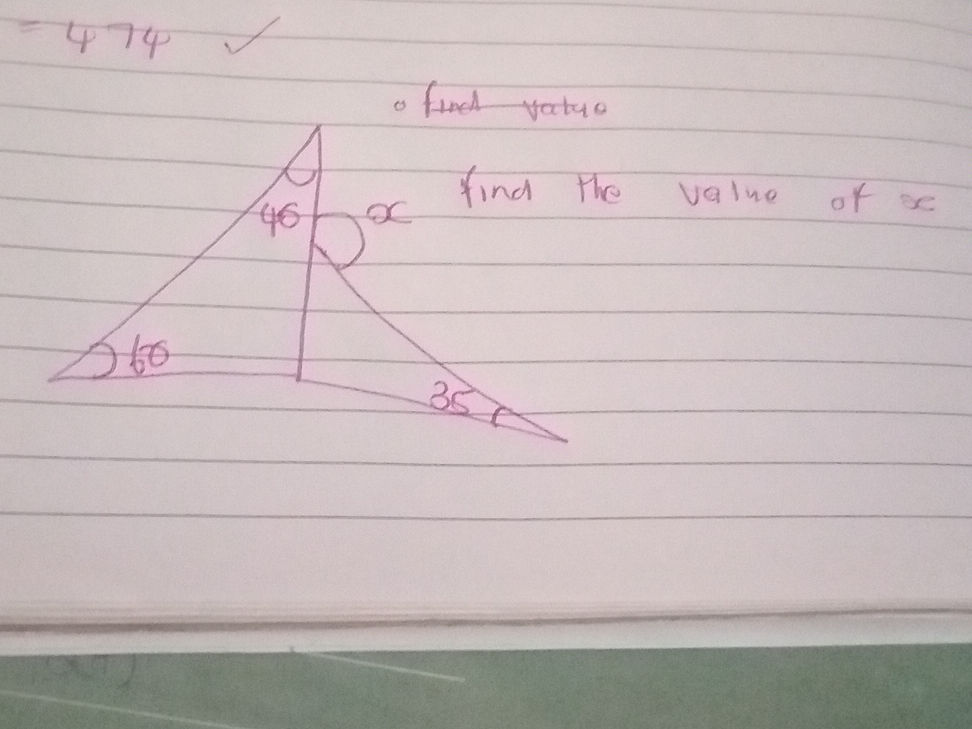 = 474 ✓
find value
find the value of x
x
60
35